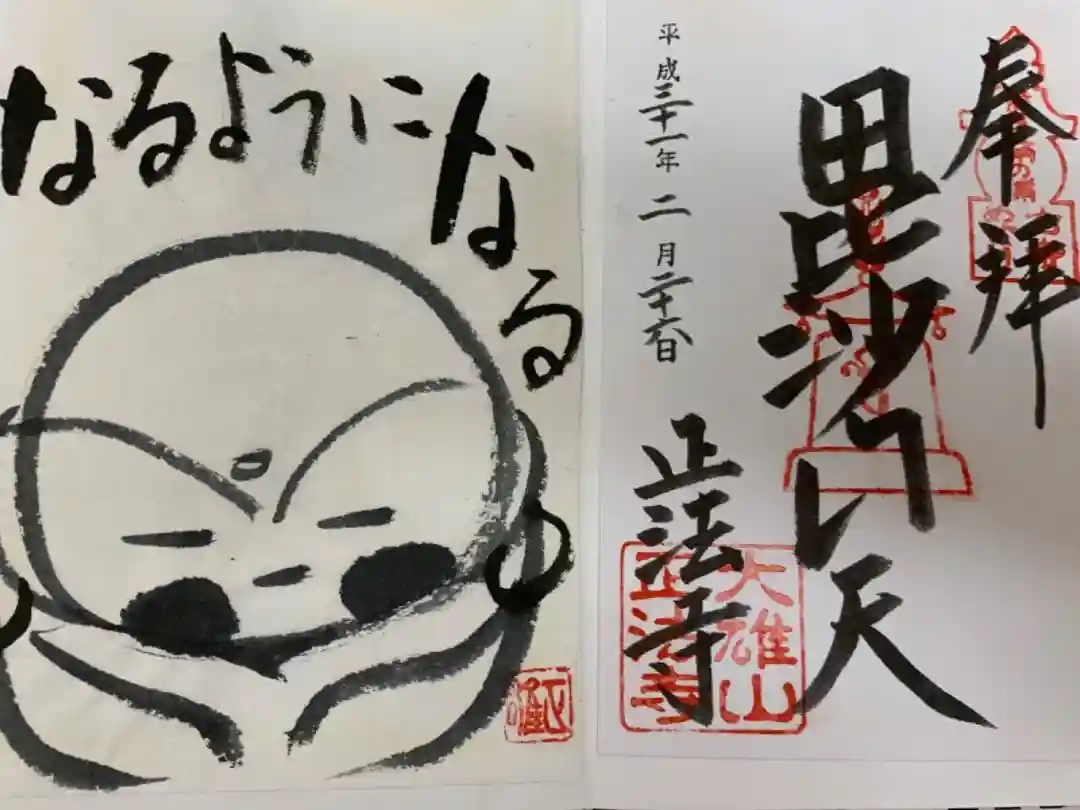 なるようになる
奉拝
毘沙門天
平成三十一年二月二十六日
正法寺
大雄山
正法寺